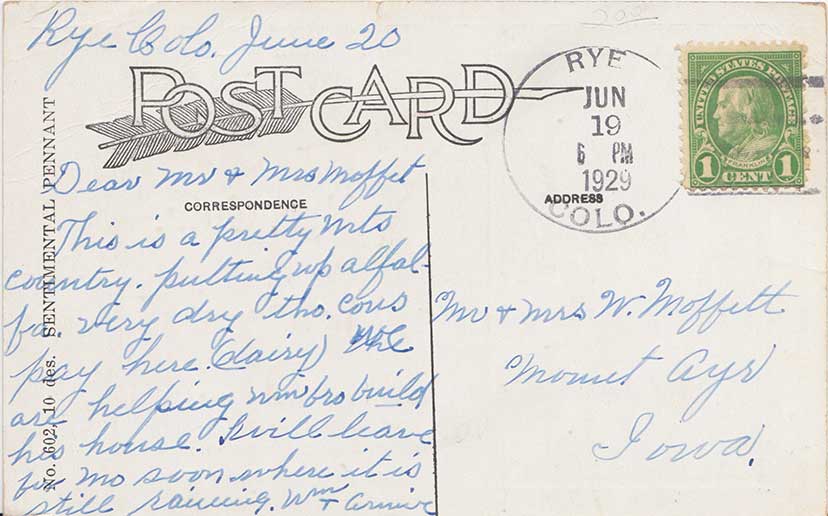 Rye Colo. June 20
POST CARD
RYE
JUN
19
6 PM
1929
COLO.
UNITED STATES POSTAGE
FRANKLIN
1 CENT 1
Dear Mr & Mrs Moffet
CORRESPONDENCE
ADDRESS
This is a pretty Mts
country. putting up alfal-
fa. very dry tho. cows
pay here. (dairy) We
are helping Wm bro build
his house. Will leave
for Mo soon where it is
still raining. Wm +
Mr & Mrs W. Moffett
Mount Ayr
Iowa,
No. 602, 10 des. SENTIMENTAL PENNANT